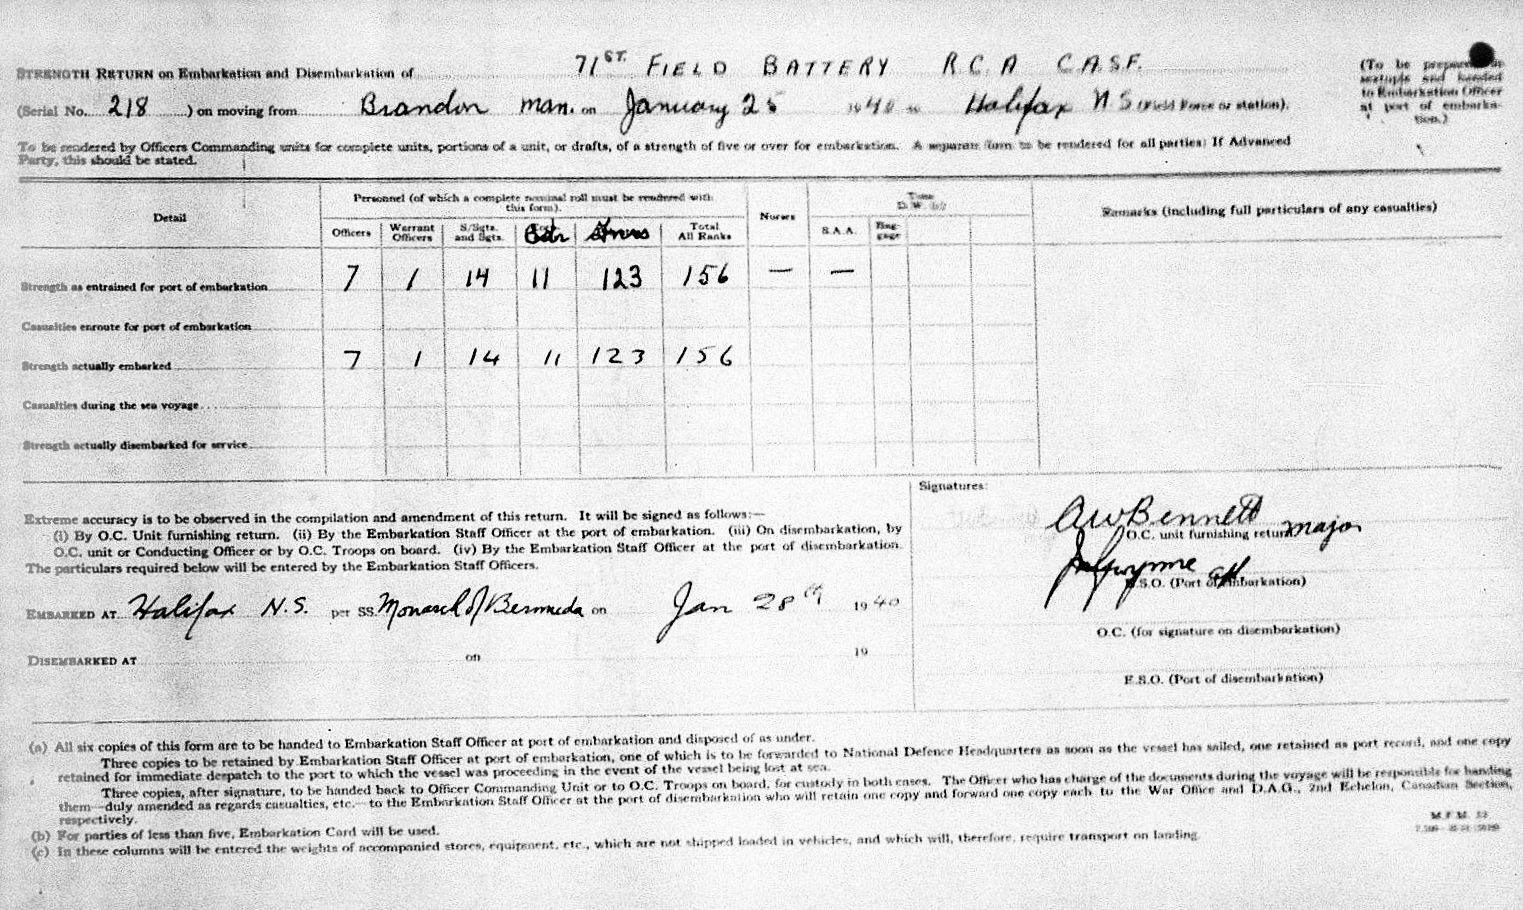 71ST. FIELD BATTERY R.C.A C.A.S.F.
STRENGTH RETURN on Embarkation and Disembarkation of
(To be prepared in
sextuple and handed
to Embarkation Officer
at port of embarka-
tion.)
(Serial No. 218 ) on moving from Brandon Man. on January 25 1940 to Halifax N S (Field Force or station).
To be rendered by Officers Commanding units for complete units, portions of a unit, or drafts, of a strength of five or over for embarkation. A separate form to be rendered for all parties: If Advanced
Party, this should be stated.
Detail
Personnel (of which a complete nominal roll must be rendered with
this form).
Officers
Warrant
Officers
S/Sgts.
and Sgts.
Bdr
Total
All Ranks
Nurses
Tons
D.W.
S.A.A.
Bag-
gage
Remarks (including full particulars of any casualties)
Strength as entrained for port of embarkation 7 1 14 11 123 156 — —
Casualties enroute for port of embarkation
Strength actually embarked 7 1 14 11 123 156
Casualties during the sea voyage
Strength actually disembarked for service
Extreme accuracy is to be observed in the compilation and amendment of this return. It will be signed as follows:—
(i) By O.C. Unit furnishing return. (ii) By the Embarkation Staff Officer at the port of embarkation. (iii) On disembarkation, by
O.C. unit or Conducting Officer or by O.C. Troops on board. (iv) By the Embarkation Staff Officer at the port of disembarkation.
The particulars required below will be entered by the Embarkation Staff Officers.
EMBARKED AT Halifax N.S. per SS. Monarch of Bermuda on Jan 28th 1940
DISEMBARKED AT on 19
Signatures:
AWBennett Major
O.C. unit furnishing return
E.S.O. (Port of embarkation)
O.C. (for signature on disembarkation)
E.S.O. (Port of disembarkation)
(a) All six copies of this form are to be handed to Embarkation Staff Officer at port of embarkation and disposed of as under.
Three copies to be retained by Embarkation Staff Officer at port of embarkation, one of which is to be forwarded to National Defence Headquarters as soon as the vessel has sailed, one retained as port record, and one copy
retained for immediate despatch to the port to which the vessel was proceeding in the event of the vessel being lost at sea.
Three copies, after signature, to be handed back to Officer Commanding Unit or to O.C. Troops on board, for custody in both cases. The Officer who has charge of the documents during the voyage will be responsible for handing
them—duly amended as regards casualties, etc.—to the Embarkation Staff Officer at the port of disembarkation who will retain one copy and forward one copy each to the War Office and D.A.G., 2nd Echelon, Canadian Section,
respectively.
(b) For parties of less than five, Embarkation Card will be used.
(c) In these columns will be entered the weights of accompanied stores, equipment, etc., which are not shipped loaded in vehicles, and which will, therefore, require transport on landing.
M.F.M. 53